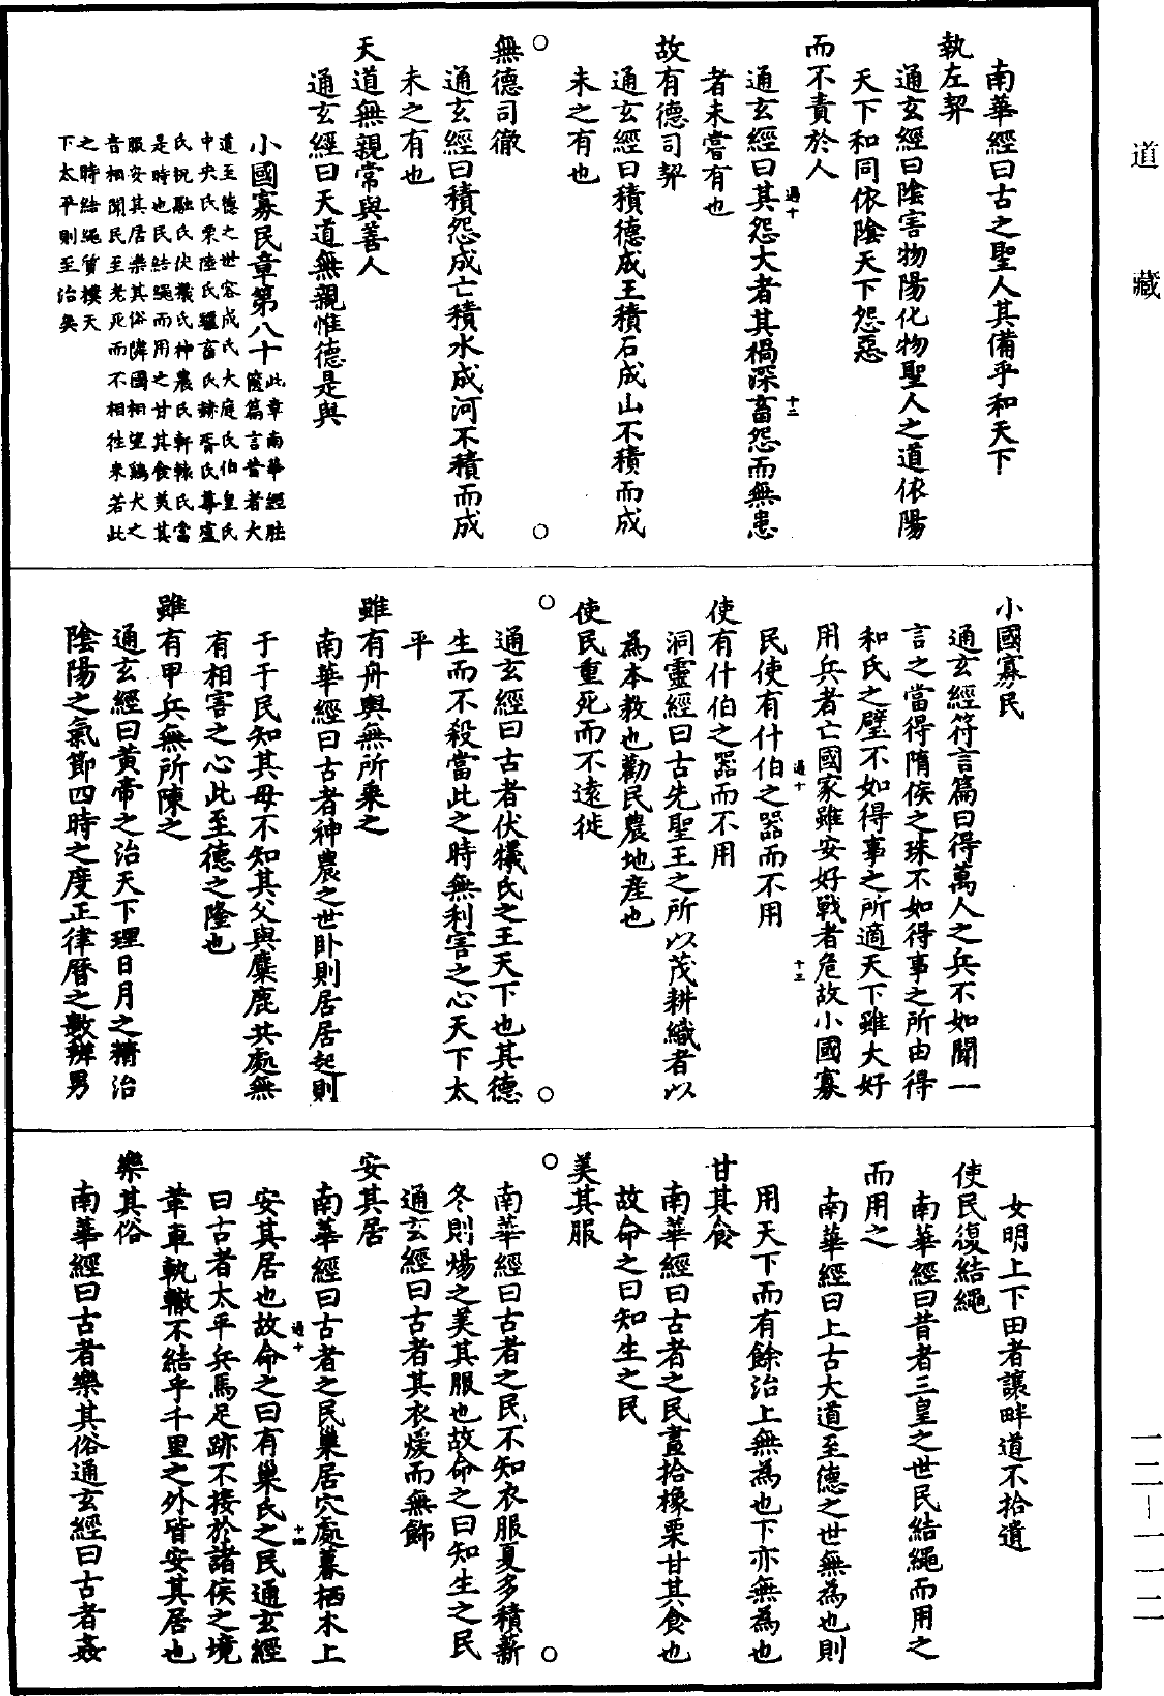 南華經曰古之聖人其備乎和天下
執左契
通玄經曰陰害物陽化物聖人之道依陽
天下和同依陰天下怨惡
而不責於人
通玄經曰其怨大者其禍深畜怨而無患
者未嘗有也
故有德司契
通玄經曰積德成王積石成山不積而成
未之有也
無德司徹
通玄經曰積怨成亡積水成河不積而成
未之有也
天道無親常與善人
通玄經曰天道無親惟德是與
小國寡民章第八十
此章南華經胠
篋篇言昔者大
道至德之世容成氏大庭氏伯皇氏
中央氏栗陸氏驪畜氏赫胥氏尊盧
氏祝融氏伏羲氏神農氏軒轅氏當
是時也民結繩而用之甘其食美其
服安其居樂其俗隣國相望鷄犬之
音相聞民至老死而不相徃來若此
之時結繩質樸天
下太平則至治矣
小國寡民
通玄經符言篇曰得萬人之兵不如聞一
言之當得隋侯之珠不如得事之所由得
和氏之璧不如得事之所適天下雖大好
用兵者亡國家雖安好戰者危故小國寡
民使有什伯之器而不用
使有什伯之器而不用
洞靈經曰古先聖王之所以茂耕織者以
為本教也勸民農地產也
使民重死而不遠徙
通玄經曰古者伏犧氏之王天下也其德
生而不殺當此之時無利害之心天下太
平
雖有舟輿無所乘之
南華經曰古者神農之世卧則居居起則
于于民知其母不知其父與麋鹿共處無
有相害之心此至德之隆也
雖有甲兵無所陳之
通玄經曰黃帝之治天下理日月之精治
陰陽之氣節四時之度正律曆之數辨男
女明上下田者讓畔道不拾遺
使民復結繩
南華經曰昔者三皇之世民結繩而用之
而用之
南華經曰上古大道至德之世無為也則
用天下而有餘治上無為也下亦無為也
甘其食
南華經曰古者之民晝拾橡栗甘其食也
故命之曰知生之民
美其服
南華經曰古者之民不知衣服夏多積薪
冬則煬之美其服也故命之曰知生之民
通玄經曰古者其衣煖而無飾
安其居
南華經曰古者之民巢居穴處暮栖木上
安其居也故命之曰有巢氏之民通玄經
曰古者太平兵馬足跡不接於諸侯之境
輦車軌轍不結乎千里之外皆安其居也
樂其俗
南華經曰古者樂其俗通玄經曰古者姦
通十
十二
通十
十三
通十
十四
道藏
一二—一一二